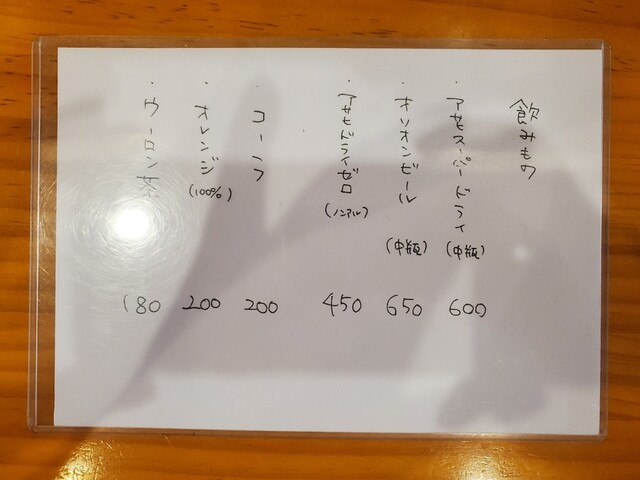 飲みもの
・アサヒスーパードライ (中瓶) 600
・オリオンビール (中瓶) 650
・アサヒドライゼロ (ノンアル) 450
・コーラ 200
・オレンジ (100%) 200
・ウーロン茶 180